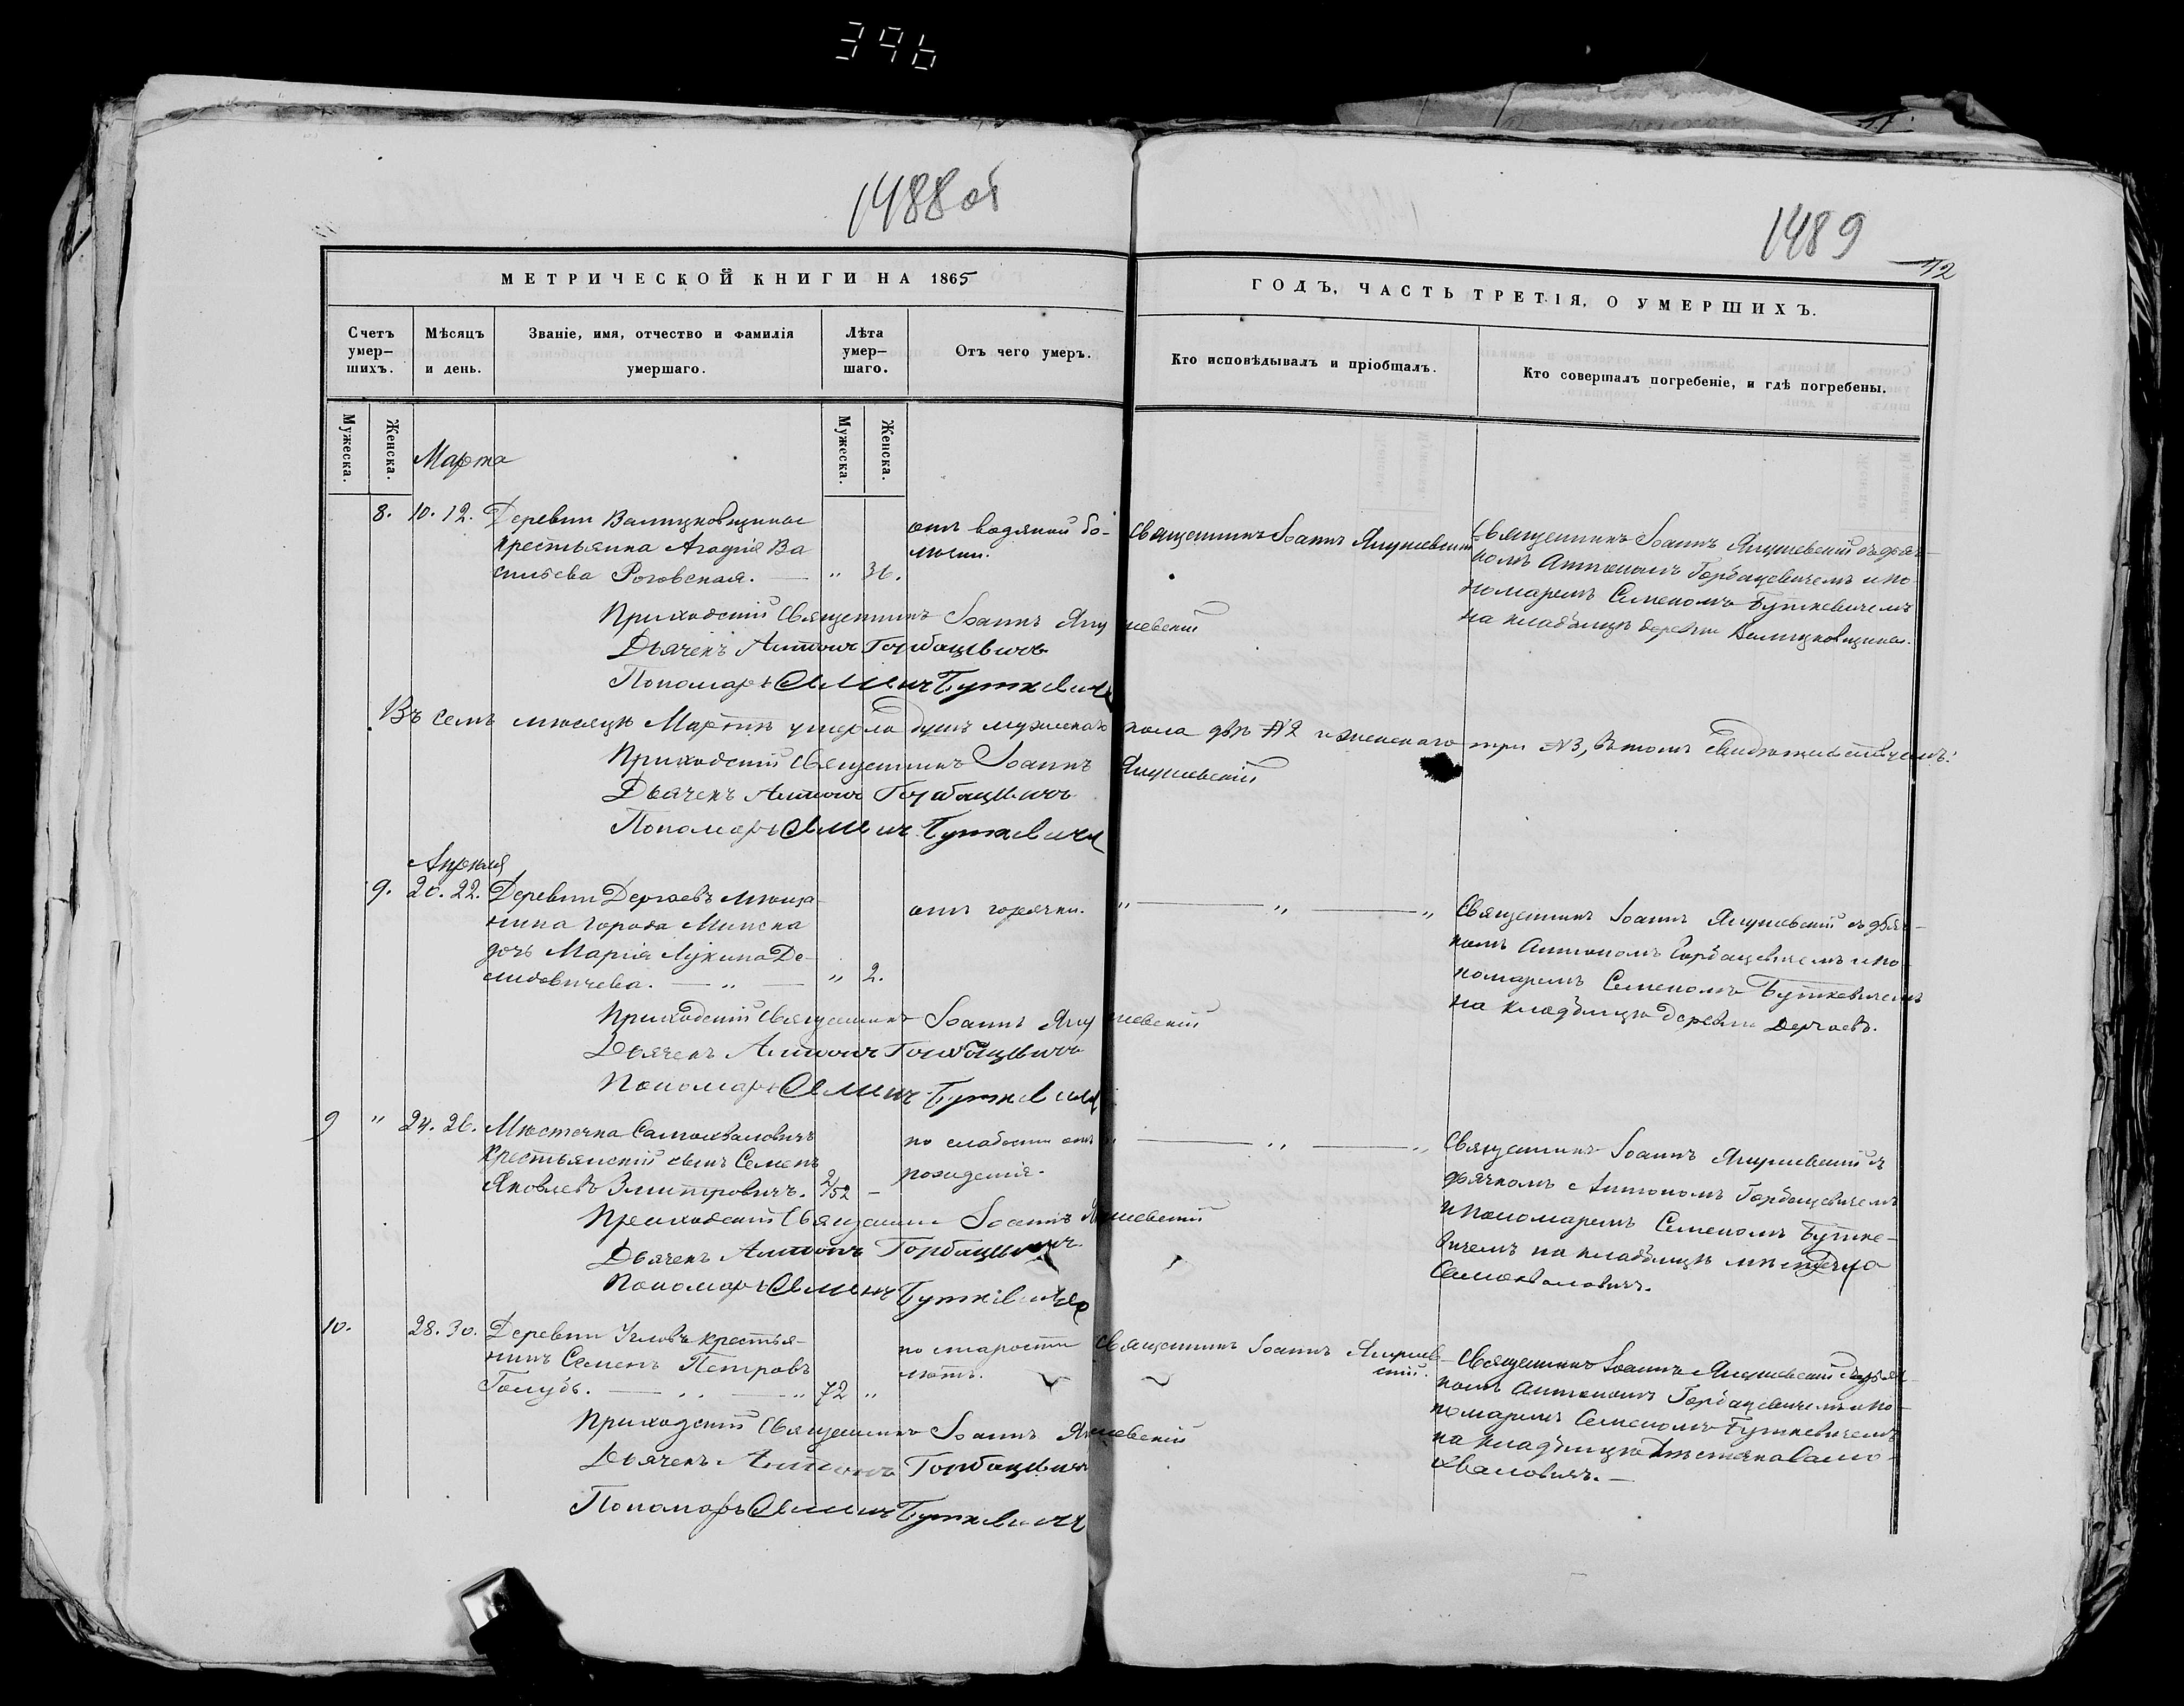 396
1488 об
1489
72
МЕТРИЧЕСКОЙ КНИГИ НА 1865
ГОДЪ, ЧАСТЬ ТРЕТІЯ, О УМЕРШИХЪ.
Счетъ умер-шихъ.
Мѣсяцъ и день.
Званіе, имя, отчество и фамилія умершаго.
Лѣта умер-шаго.
Отъ чего умеръ.
Кто исповѣдывалъ и пріобщалъ.
Кто совершалъ погребеніе, и гдѣ погребены.
Мужеска.
Женска.
Мужеска.
Женска.
Марта
8. 10. 12. Деревни
крестьянка Агафія Ва
сильева Роговская. — „ 36.
отъ водяной бо-
лѣзни.
Священникъ Іоаннъ Янушевскій
Священникъ Іоаннъ Янушевскій съ дьяч-
комъ Антономъ Горбацевичемъ и по-
номаремъ Семеномъ Буткевичемъ
на кладбищѣ деревни
Приходскій Священникъ Іоаннъ Янушевскій
Дьячекъ Антонъ Горбацевичъ
Пономарь Семенъ Буткевичъ
Въ семъ мѣсяцѣ Мартѣ умерло душъ мужескаго пола двѣ №2 и женскаго три №3, въ томъ свидѣтельствуемъ:
Приходскій Священникъ Іоаннъ Янушевскій
Дьячекъ Антонъ Горбацевичъ
Пономарь Семенъ Буткевичъ
Апрѣля
9. 20. 22. Деревни Дергаевъ мѣща-
нина города Минска
дочь Марія Лукина Де-
мидовичева. — „ — „ 2.
отъ горячки.
„ — „ — „
Священникъ Іоаннъ Янушевскій съ дьяч-
комъ Антономъ Горбацевичемъ и по-
номаремъ Семеномъ Буткевичемъ
на кладбищѣ деревни Дергаевъ.
Приходскій Священникъ Іоаннъ Янушевскій
Дьячекъ Антонъ Горбацевичъ
Пономарь Семенъ Буткевичъ
9 „ 24. 26. Мѣстечка Самохваловичъ
крестьянскій сынъ Семенъ
Яковлевъ Змитровичъ. 2/52 —
по слабости отъ
рожденія.
„ — „ — „
Священникъ Іоаннъ Янушевскій съ
дьячкомъ Антономъ Горбацевичемъ
и пономаремъ Семеномъ Буткe-
вичемъ на кладбищѣ мѣстечка
Самохваловичъ.
Приходскій Священникъ Іоаннъ Янушевскій
Дьячекъ Антонъ Горбацевичъ
Пономарь Семенъ Буткевичъ
10. 28. 30. Деревни Угловъ крестья-
нинъ Семенъ Петровъ
Голубъ. — „ — „ 72 „
по старости
лѣтъ.
Священникъ Іоаннъ Янушев-
скій.
Священникъ Іоаннъ Янушевскій съ дьяч-
комъ Антономъ Горбацевичемъ и по-
номаремъ Семеномъ Буткевичемъ
на кладбищѣ мѣстечка Само-
хваловичъ. —
Приходскій Священникъ Іоаннъ Янушевскій
Дьячекъ Антонъ Горбацевичъ
Пономарь Семенъ Буткевичъ